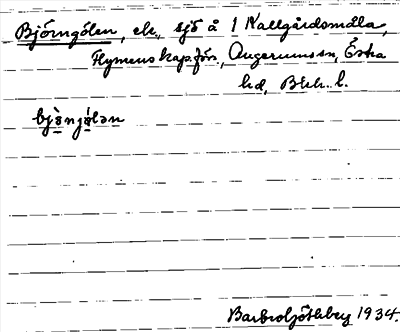 Björngölen, ek., sjö å 1 Kallgårdsmåla,
Flymens kap.förs., Augerums sn, Östra
hd, Blek. l.
bjò̤njó̤lən
Barbro Ljöthberg 1934.